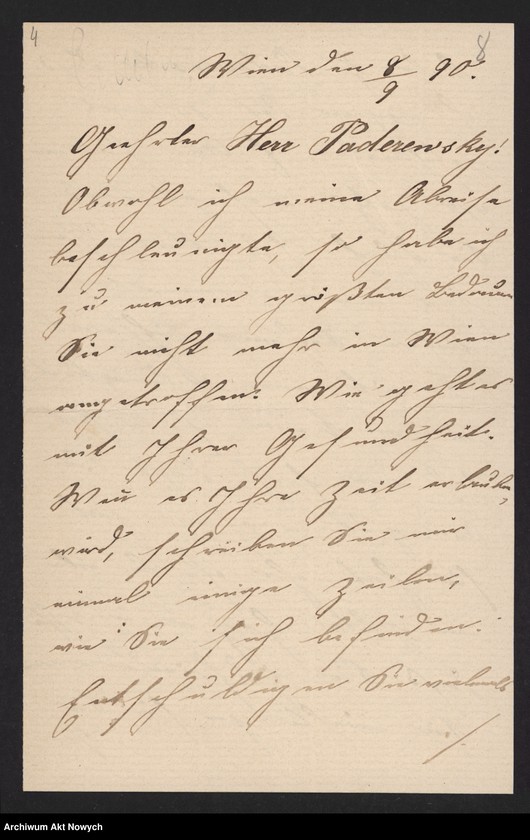 4
8
Wien den 8/9 90.
Geehrter Herr Paderewsky!
Obwohl ich meine Abreise
beschleunigte, so habe ich
zu meinem größten Bedauern
Sie nicht mehr in Wien
angetroffen. Wie geht es
mit Ihrer Gesundheit.
Wen es Ihre Zeit erlauben
wird, schreiben Sie mir
einmal einige Zeilen,
wie Sie sich befinden.
Entschuldigen Sie vielmals
/.
Archiwum Akt Nowych